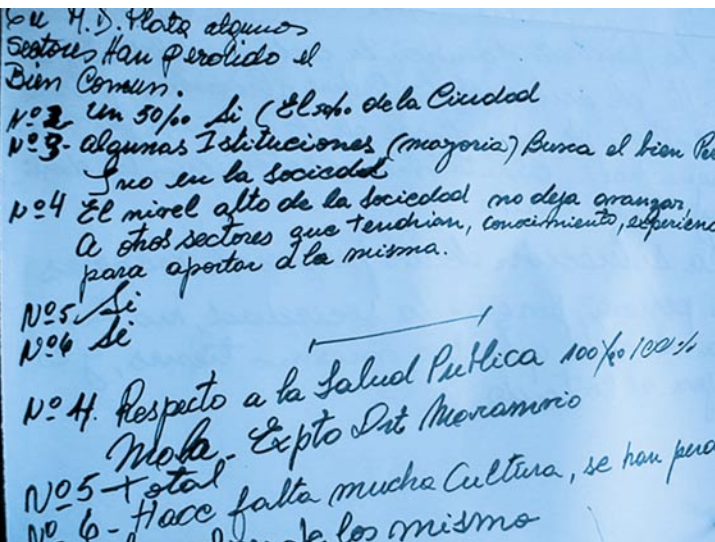 En M.D. Plata algunos
Sectores Han perdido el
Bien Comun.
Nº2 Un 50% Si (El 50% de la Ciudad
Nº3- algunas Istituciones (mayoria) Busca el bien Per
Ino en la Sociedad
Nº4 El nivel alto de la Sociedad no deja avanzar,
A otros sectores que tendrian, conocimiento, experienc
para aportar a la misma.
Nº5 Si
Nº6 Si
Nº 4. Respecto a la Salud Publica 100% 100%
Mala - Expto Int
Nº5 - Total
Nº 6 - Hace falta mucha Cultura, se han perd
de los mismo